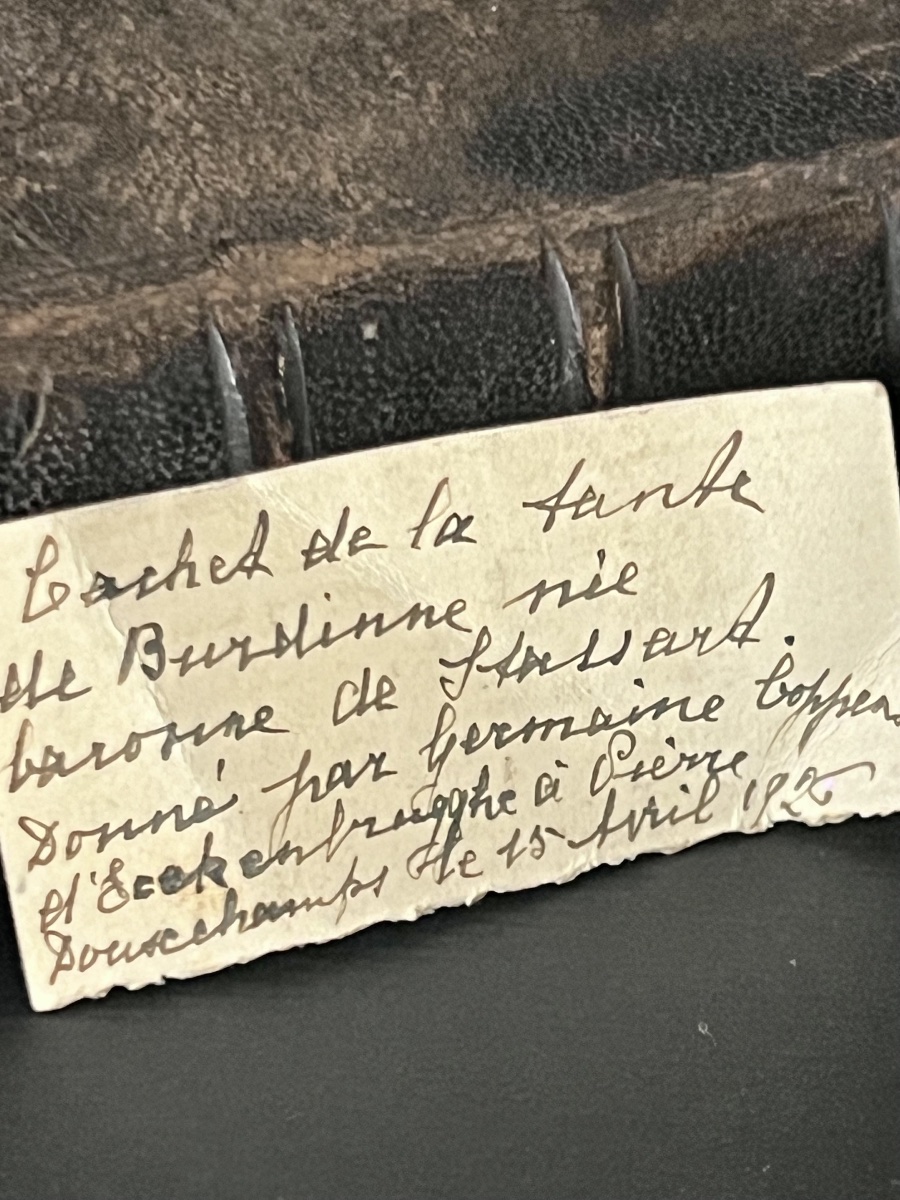 Cachet de la tante
de Burdinne née
baronne de Stassart.
Donné par Germaine Coppens
d'Eeckenbrugghe à Pierre
Douxchamps le 15 Avril 1925